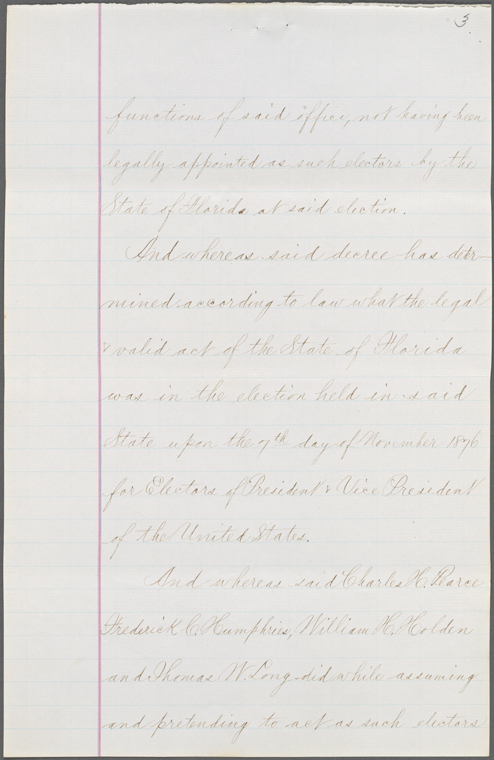 3
functions of said office, not having been
legally appointed as such electors by the
State of Florida at said election.
And whereas said decree has deter-
mined according to law what the legal
& valid act of the State of Florida
was in the election held in said
State upon the 7th day of November 1876
for Electors of President & Vice President
of the United States.
And whereas said Charles H. Pearce
Frederick C. Humphries, William H. Holden
and Thomas W. Long did while assuming
and pretending to act as such electors